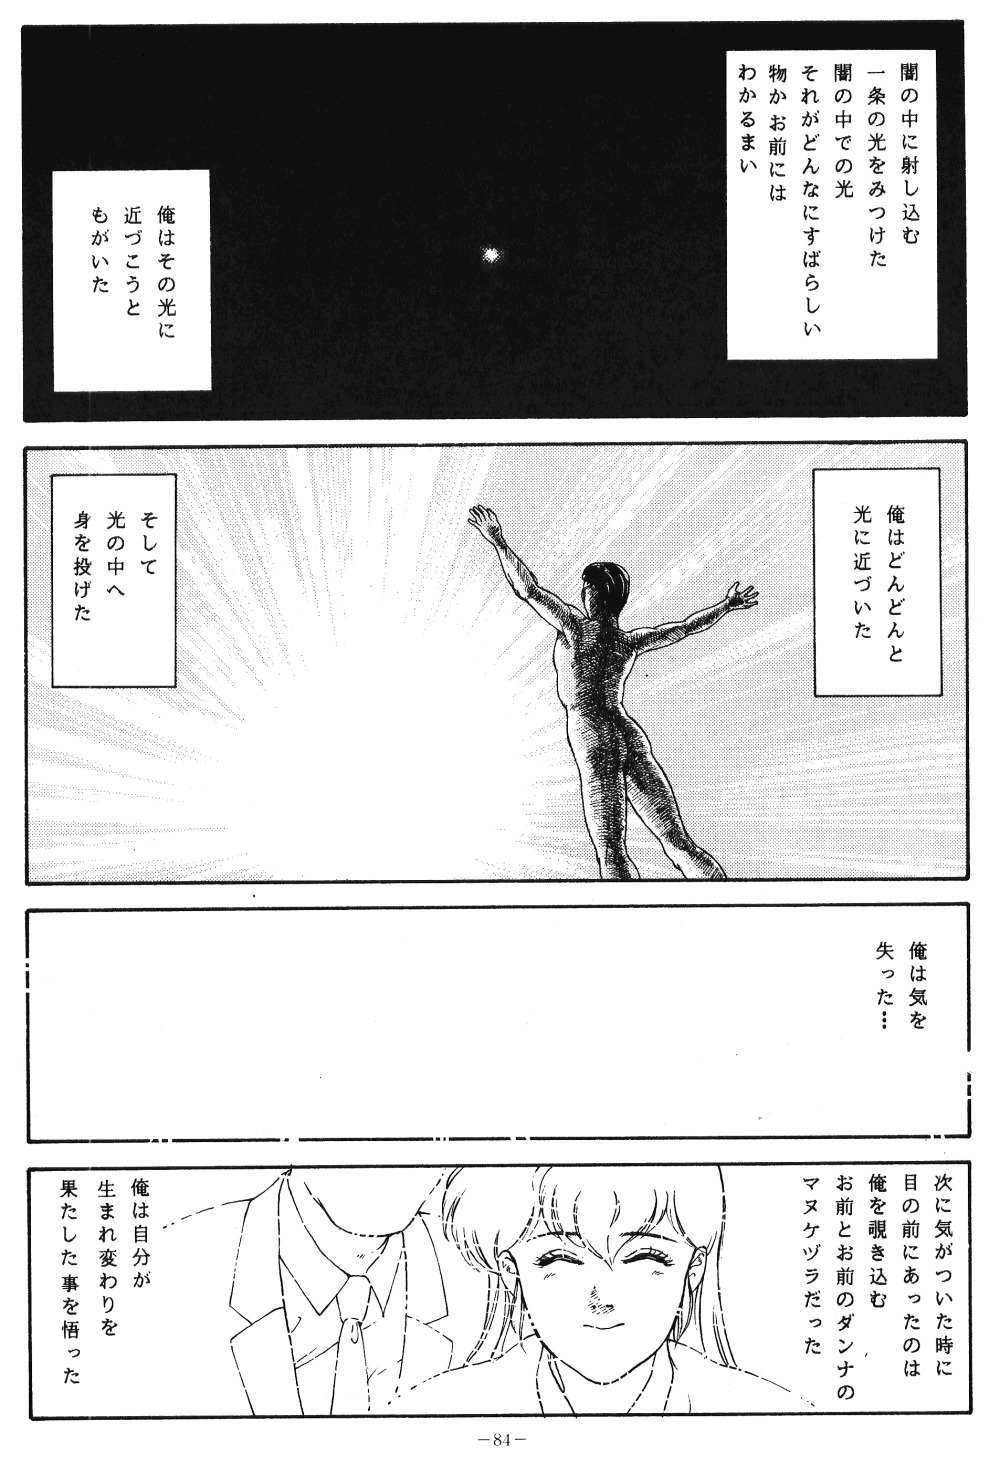 闇の中に射し込む
一条の光をみつけた
闇の中での光
それがどんなにすばらしい
物かお前には
わかるまい
俺はその光に
近づこうと
もがいた
俺はどんどんと
光に近づいた
そして
光の中へ
身を投げた
俺は気を
失った…
次に気がついた時に
目の前にあったのは
俺を覗き込む
お前とお前のダンナの
マヌケヅラだった
俺は自分が
生まれ変わりを
果たした事を悟った
−84−